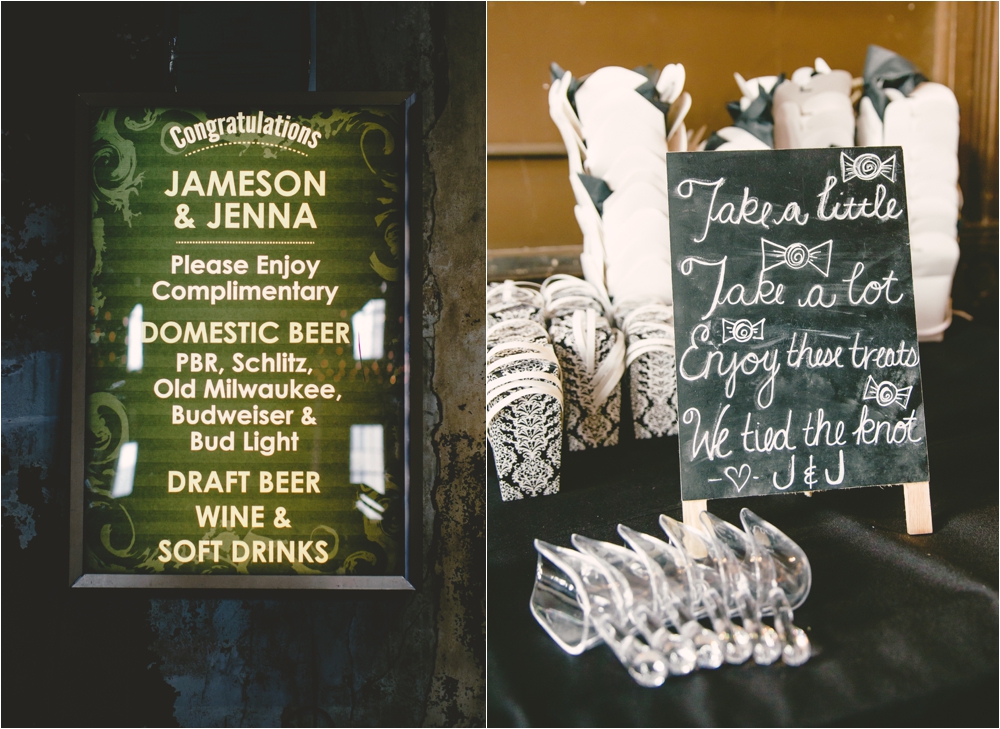 Congratulations
JAMESON
& JENNA
Please Enjoy
Complimentary
DOMESTIC BEER
PBR, Schlitz,
Old Milwaukee,
Budweiser &
Bud Light
DRAFT BEER
WINE &
SOFT DRINKS
Take a little
Take a lot
Enjoy these treats
We tied the knot
-♡- J & J